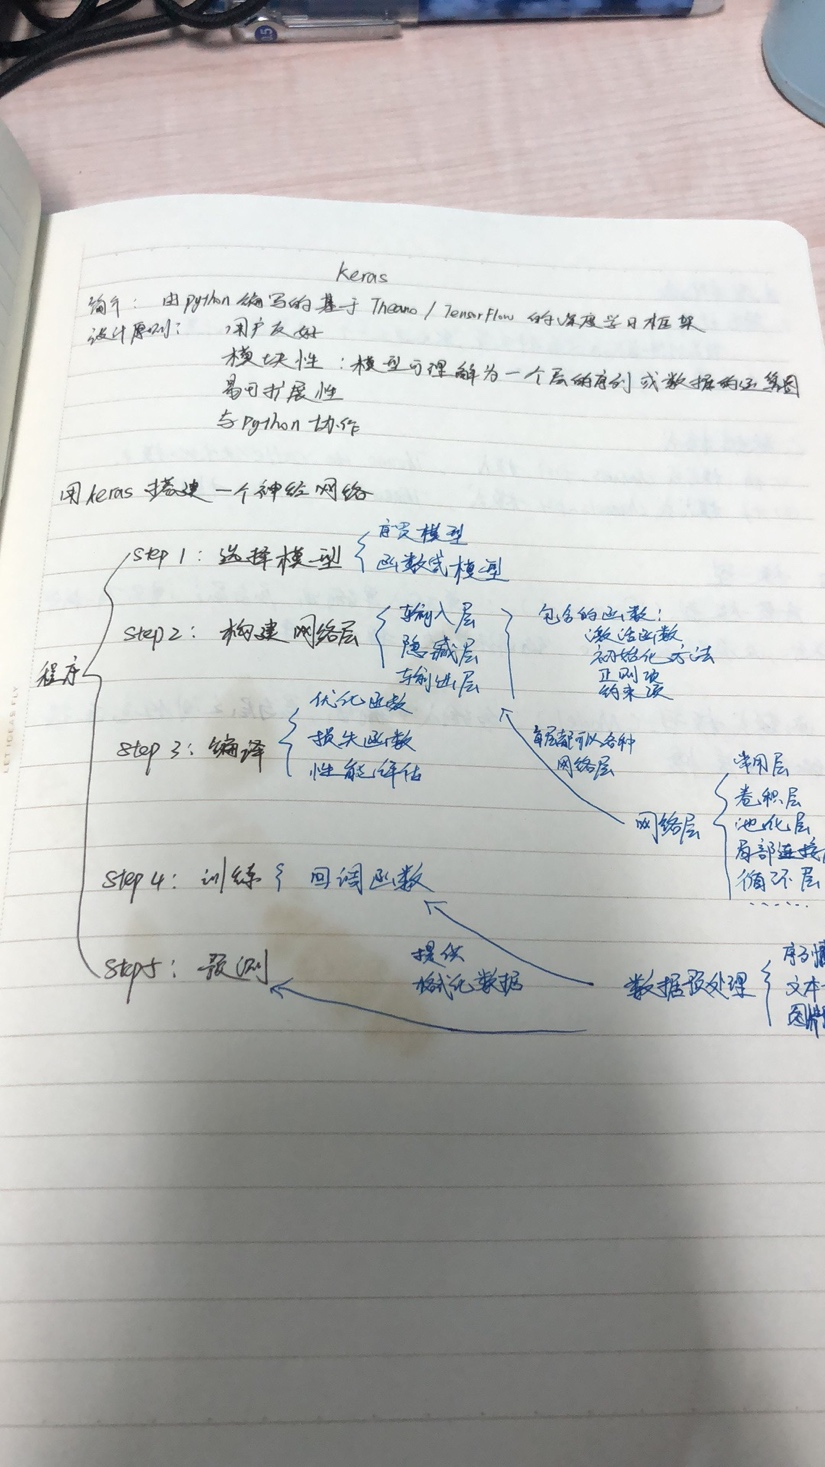 Keras
简介: 由python编写的基于Theano / TensorFlow 的深度学习框架
设计原则: 用户友好
模块性: 模型可理解为一个层的序列或数据的运算图
易扩展性
与python协作
用keras搭建一个神经网络
程序
step 1: 选择模型
序贯模型
函数式模型
step2: 构建网络层
输入层
隐藏层
输出层
包含的函数:
激活函数
初始化方法
正则项
约束项
step 3: 编译
优化函数
损失函数
性能评估
每层都可以各种
网络层
网络层
常用层
卷积层
池化层
局部连接
循环层
......
step 4: 训练
回调函数
step5: 预测
提供
格式化数据
数据预处理
序列
文本
图片
LET IDEAS FLY